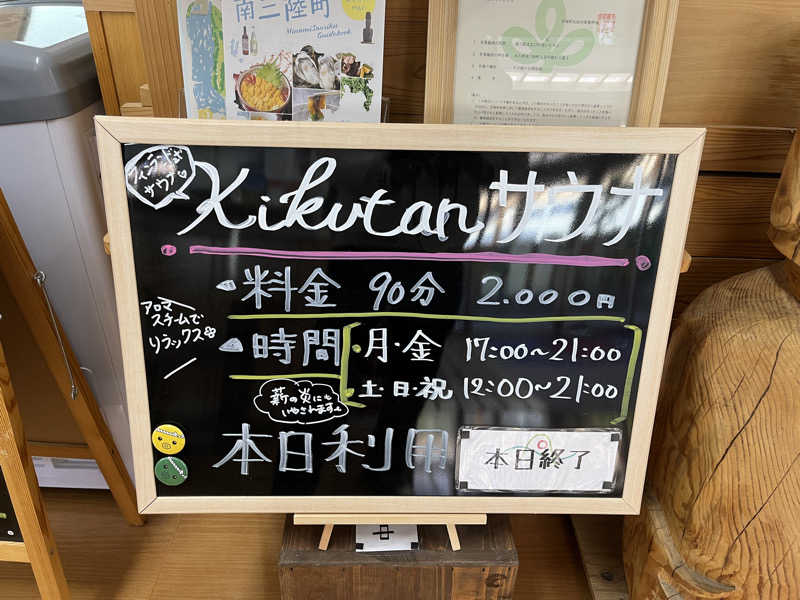 南三陸町
MinamiSanriku
Guidebook
フィーランド式
サウナ
Kikutanサウナ
・料金 90分 2.000円
アロマ
スチームで
リラックス
・時間
・月・金 17:00〜21:00
・土・日・祝 12:00〜21:00
薪の炎にも
いやされます
本日利用
本日終了